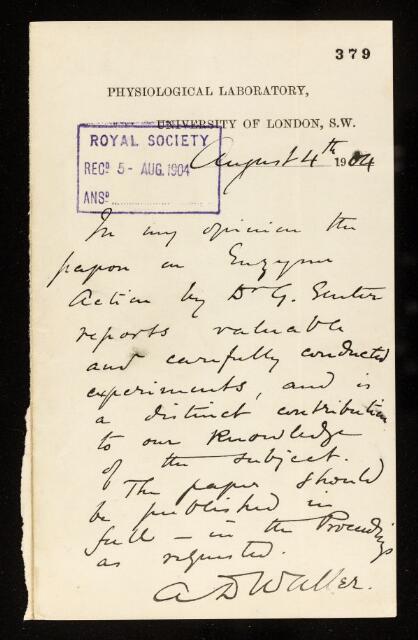 379
PHYSIOLOGICAL LABORATORY,
UNIVERSITY OF LONDON, S.W.
ROYAL SOCIETY
RECD 5 - AUG. 1904
ANSD
August 4th 1904
In my opinion the
paper on Enzyme
Action by Dr G. Senter
reports valuable
and carefully conducted
experiments, and is
a distinct contribution
to our knowledge
of the subject.
The paper should
be published in
full - in the Proceedings
as requested.
A D Waller.